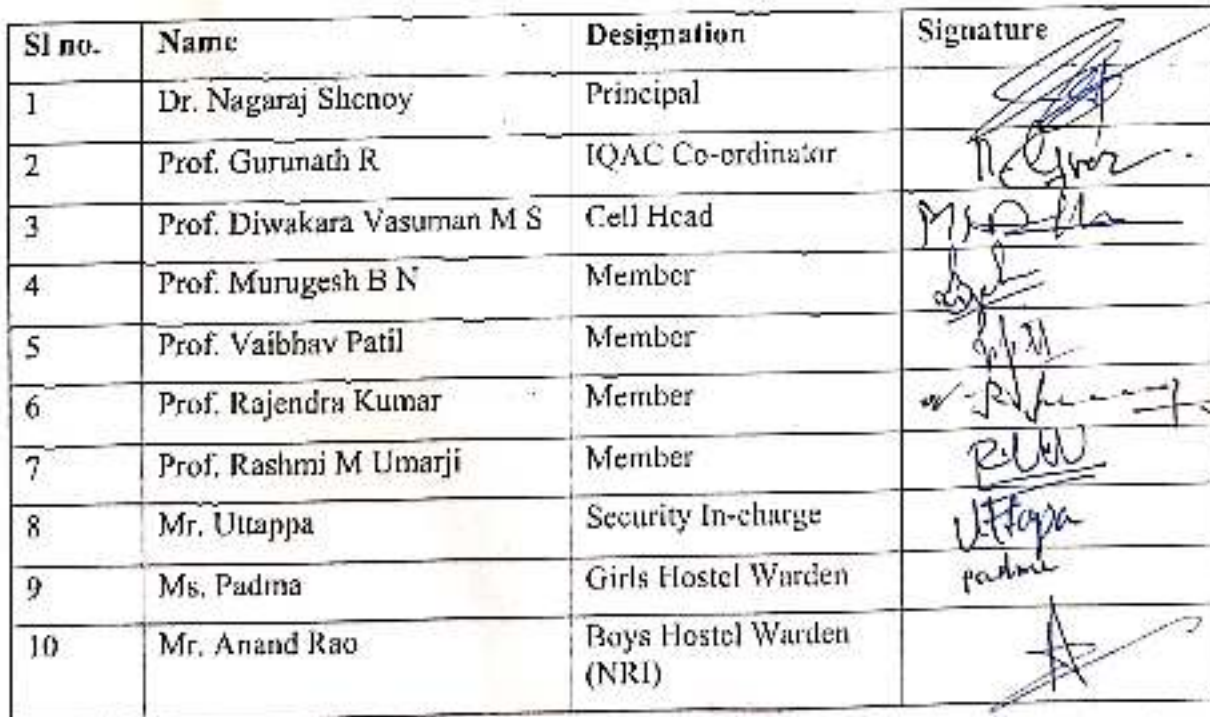 Sl no. Name Designation Signature
1 Dr. Nagaraj Shenoy Principal
2 Prof. Gurunath R IQAC Co-ordinator
3 Prof. Diwakara Vasuman M S Cell Head
4 Prof. Murugesh B N Member
5 Prof. Vaibhav Patil Member
6 Prof. Rajendra Kumar Member
7 Prof. Rashmi M Umarji Member
8 Mr. Uttappa Security In-charge Uttapa
9 Ms. Padma Girls Hostel Warden padma
10 Mr. Anand Rao Boys Hostel Warden
(NRI)